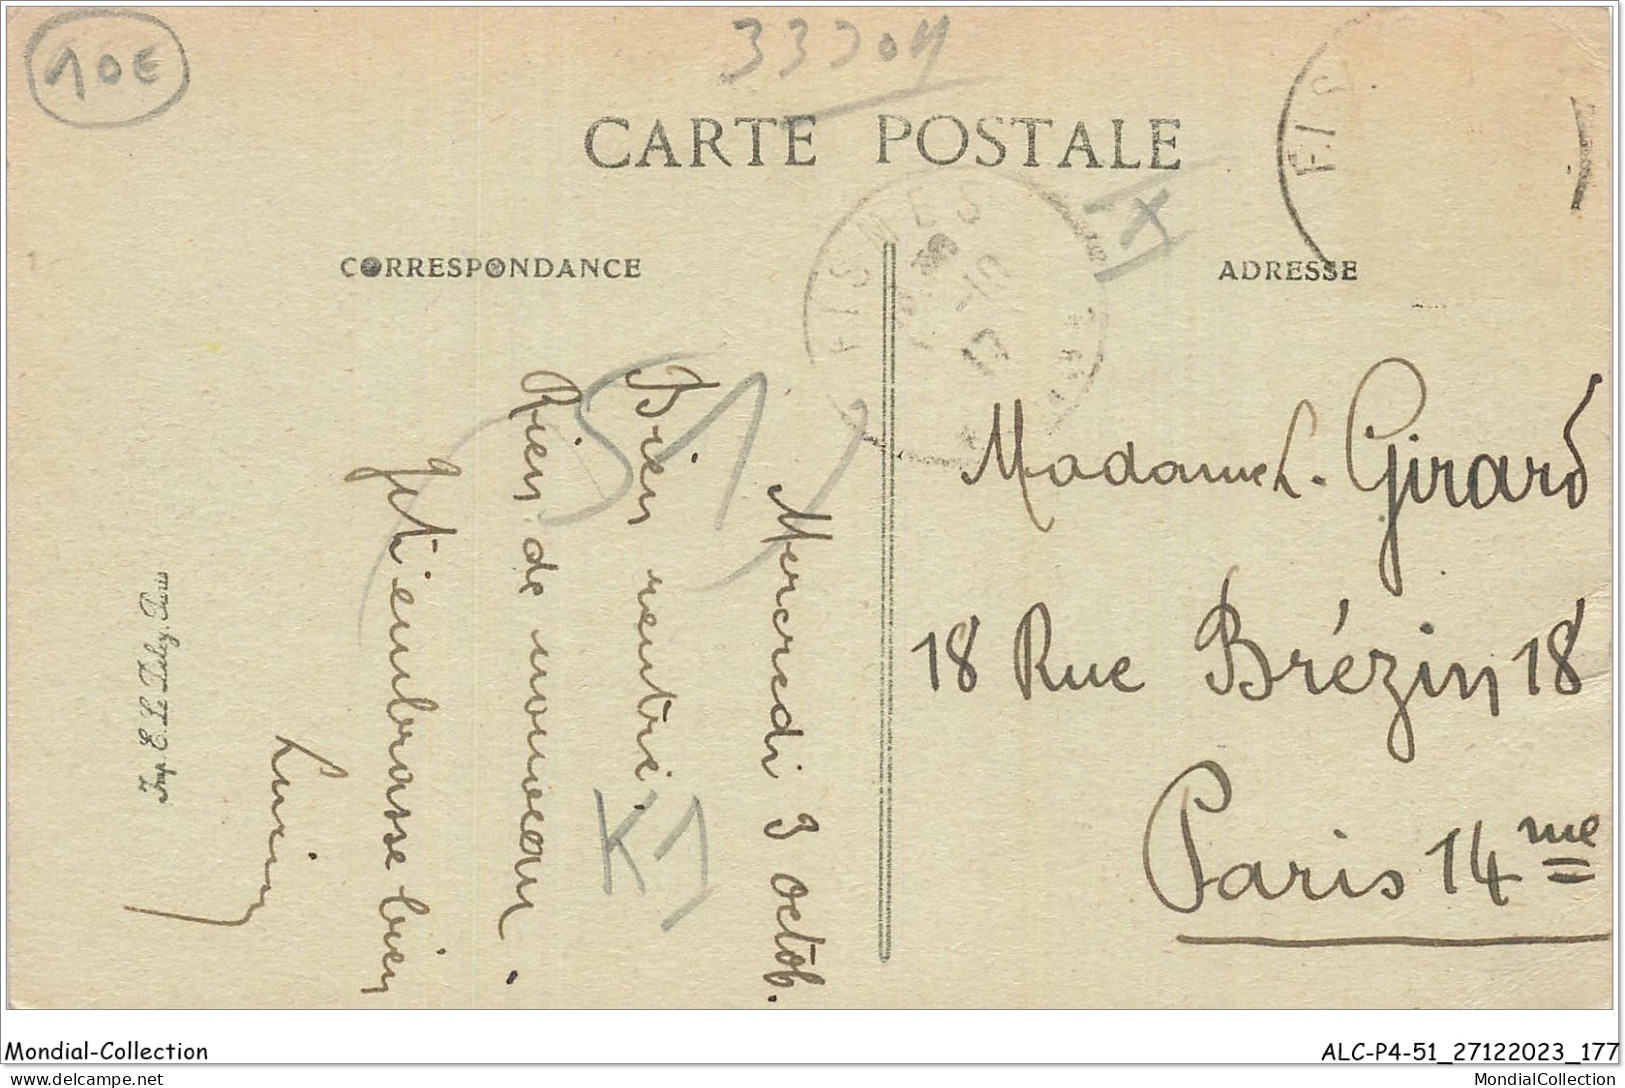 10E
CARTE POSTALE
CORRESPONDANCE
ADRESSE
FISMES
-10
17
FIS
51
X
K1
Mercredi 3 octob.
Bien rentré.
Rien de nouveau.
Je t'embrasse bien
Lucien
Madame L. Girard
18 Rue Brézin 18
Paris 14me
Imp. E. Le Deley, Paris
Mondial-Collection
ALC-P4-51_27122023_177
delcampe.net
MondialCollection